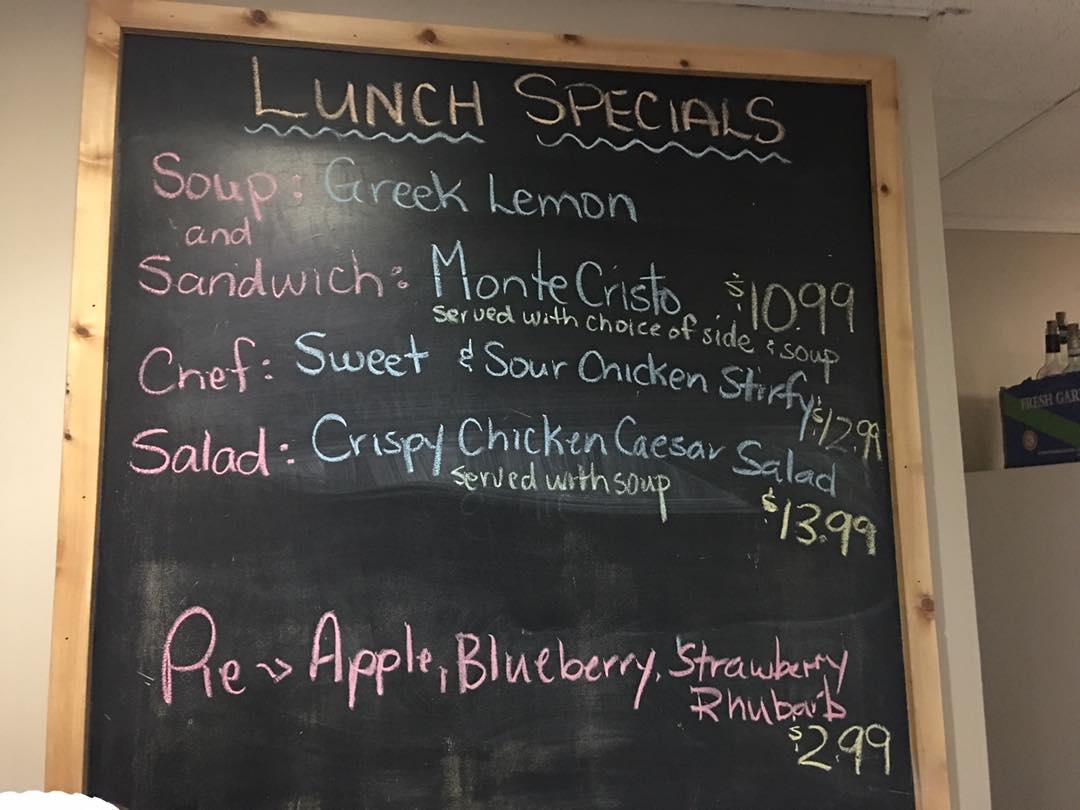 LUNCH SPECIALS
Soup: Greek Lemon
and
Sandwich: Monte Cristo $10.99
served with choice of side & soup
Chef: Sweet & Sour Chicken Stirfy $12.99
Salad: Crispy Chicken Caesar Salad
served with soup
$13.99
Pie → Apple, Blueberry, Strawberry
Rhubarb
$2.99
FRESH GAR